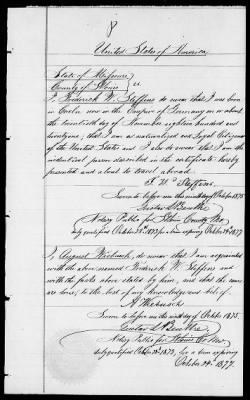 8
United States of America.
State of Missouri
County of St Louis } ss
I, Frederick W. Steffens do swear that I was born
in Goslar now in the Empire of Germany on or about
the twentieth day of November eighteen hundred and
twentynine; that I am a naturalized and loyal Citizen
of the United States and I also do swear that I am the
individual person described in the certificate hereby
presented and about to travel abroad.
F. W. Steffens
Sworn to before me this ninth day of October 1875
Notary Public for St Louis County Mo
duly qualified October 24th 1873 for a term expiring October 24th 1877
I, August do swear that I am acquainted
with the above named Frederick W. Steffens and
with the facts above stated by him, and that the same
are true, to the best of my knowledge and belief.
Sworn to before me this ninth day of October 1875.
Notary Public for St Louis Co Mo
duly qualified October 24th 1873, for a term expiring
October 24th 1877.